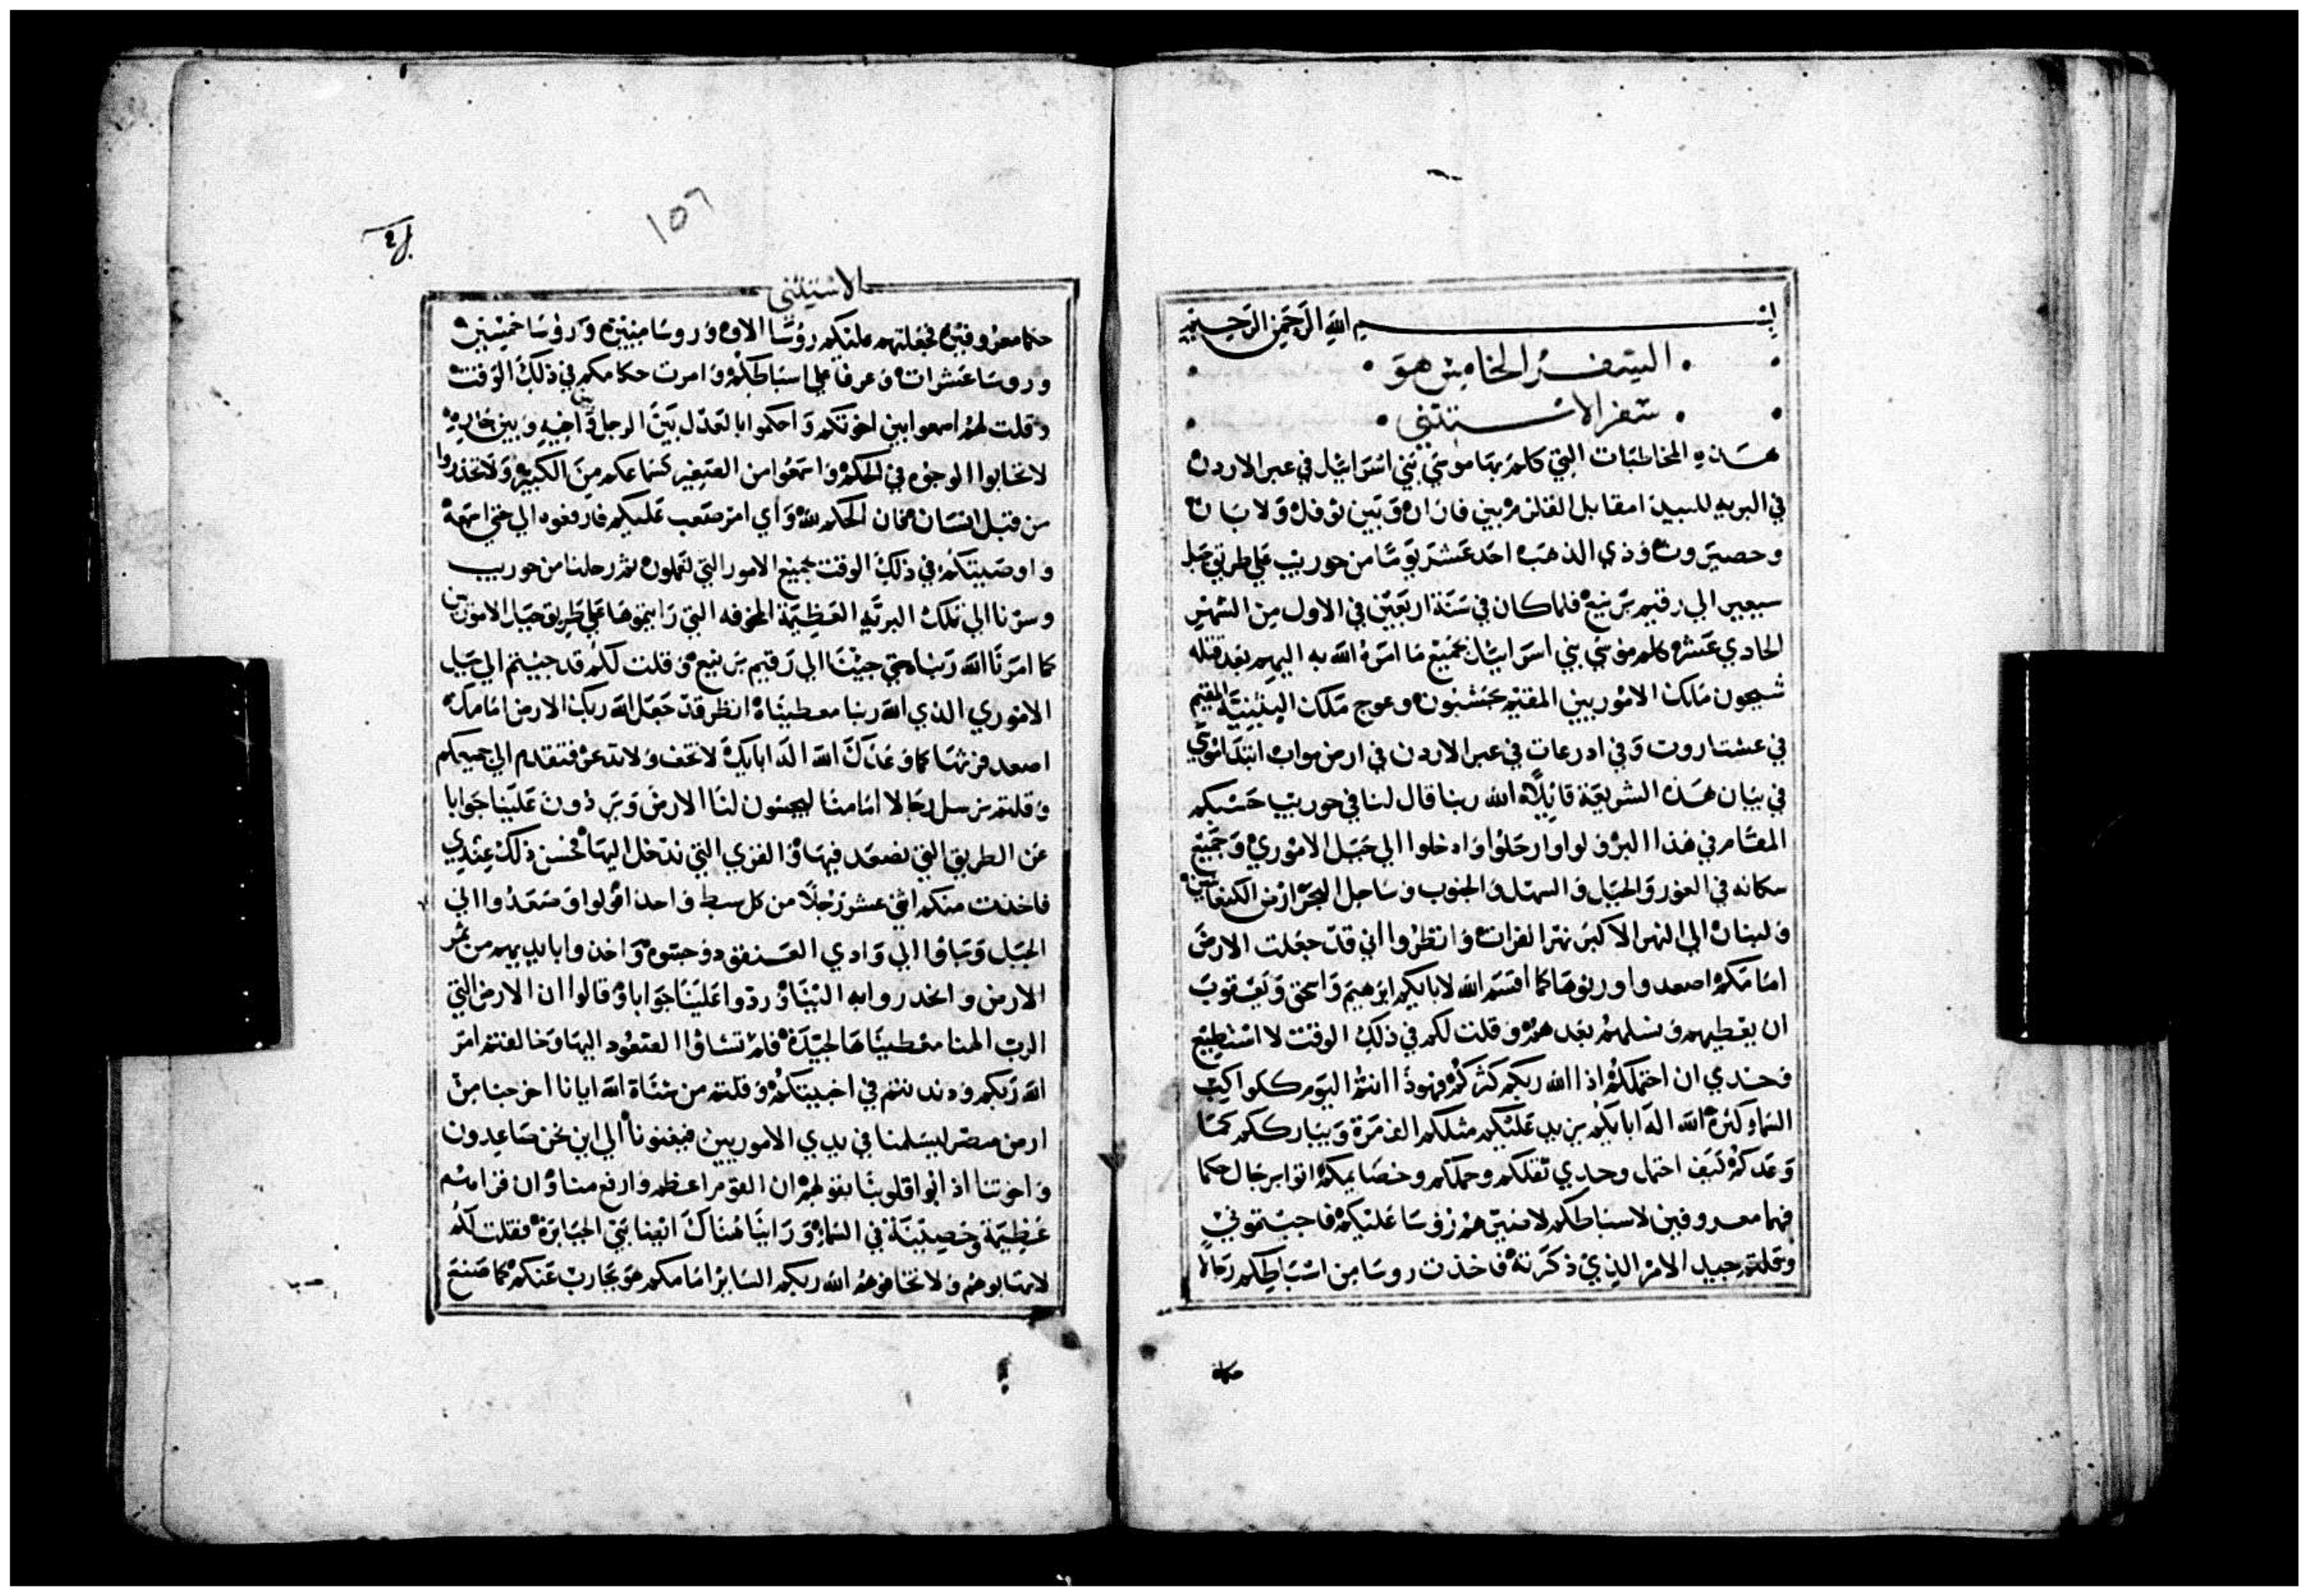 بسم الله الرحمن الرحيم
السفر الخامس هو
سفر الاستثني
هذه المخاطبات التي كلم بها موسي بني اسراييل في عبر الاردن
في البريه للبيدا مقابل القلزم بين فاران وبين توفل ولابان
وحصيروت وذي الذهب احد عشر يوما من حوريب علي طريق جبل
سيعير الي رقيم برنيع فلما كان في سنة اربعين في الاول من الشهر
الحادي عشر كلم موسي بني اسراييل بجميع ما امره الله به اليهم بعد قتله
سيحون ملك الاموريين المقيم بحشبون وعوج ملك البثنية المقيم
في عشتاروت وفي ادرعات في عبر الاردن في ارض مواب ابتدا موسي
في بيان هذه الشريعة قايلا الله ربنا قال لنا في حوريب حسبكم
المقام في هذا البر ولوا وارحلوا وادخلوا الي جبل الاموري وجميع
سكانه في الغور والجبل والسهل والجنوب وساحل البحر ارض الكنعانيين
ولبنان الي النهر الاكبر نهر الفرات وانظروا اني قد جعلت الارض
امامكم اصعدوا واورثوها كما اقسم الله لابايكم ابرهيم واسحق ويعقوب
ان يعطيهم ونسلهم بعدهم وقلت لكم في ذلك الوقت لا استطيع
وحدي ان احتملكم اذا الله ربكم كثركم فهوذا انتم اليوم ككواكب
السماء كثرة الله اله ابايكم يزيد عليكم مثلكم الف مرة ويبارككم كما
وعدكم كيف احتمل وحدي ثقلكم وحملكم وخصايمكم اتوا برجال حكما
فهما معروفين لاسباطكم لاصيرهم روسا عليكم فاجبتموني
وقلتم جيد الامر الذي ذكرته فاخذت روسا من اسباطكم رجالا
حكما
١٥٦
الاستثني
حكما معروفين فجعلتهم عليكم روسا الاوف وروسا ميين وروسا خمسين
وروسا عشرات وعرفا علي اسباطكم وامرت حكامكم في ذلك الوقت
وقلت لهم اسمعوا بين اخوتكم واحكموا بالعدل بين الرجل واخيه وبين جاره
لا تحابوا الوجوه في الحكم واسمعوا من الصغير كسماعكم من الكبير ولا تحذروا
من قبل انسان فان الحكم لله واي امر صعب عليكم فارفعوه الي حتي اسمعه
واوصيتكم في ذلك الوقت بجميع الامور التي تعملون ثم رحلنا من حوريب
وسرنا الي تلك البرية العظيمة المخوفه التي رايتموها علي طريق جبل الاموريين
كما امرنا الله ربنا حتي جينا الي رقيم برنيع وقلت لكم قد جيتم الي جبل
الاموري الذي الله ربنا معطيناه انظر قد جعل الله ربك الارض امامك
اصعد فرثها كما وعدك الله اله ابايك لا تخف ولا تذعر فتقدم الي جميعكم
وقلتم نرسل رجالا امامنا ليجسون لنا الارض ويردون علينا جوابا
عن الطريق التي نصعد فيها والقري التي ندخل اليها فحسن ذلك عندي
فاخذت منكم اثني عشر رجلا من كل سبط واحد فولوا وصعدوا الي
الجبل وجاوا الي وادي العنقود وجسوه واخذوا بايديهم من ثمر
الارض وانحدروا به الينا وردوا علينا جوابا وقالوا ان الارض التي
الرب الهنا معطيناها لجيدة فلم تشاوا الصعود اليها وخالفتم امر
الله ربكم ودندنتم في اخبيتكم وقلتم من شناة الله ايانا اخرجنا من
ارض مصر ليسلمنا في يدي الاموريين فيفنونا الي اين نحن صاعدون
واخوتنا اذابوا قلوبنا بقولهم ان القوم اعظم وارفع منا وان قراهم
عظيمة وحصينة في السماء وراينا هناك ايضا بني الجبابرة فقلت لكم
لا تهابوهم ولا تخافوهم الله ربكم الساير امامكم هو يحارب عنكم كما صنع